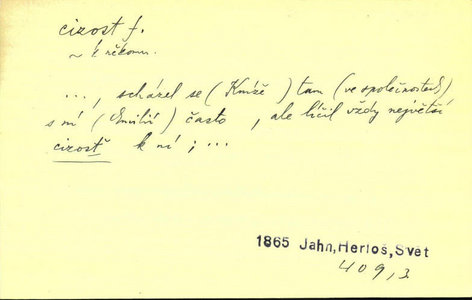 cizost f.
~ k někomu.
..., scházel se (Kníže) tam (ve společnostech)
s ní (Emilií) často, ale líčil vždy největší
cizost k ní; ...
1865 Jahn, Herloš, Svět
409,3